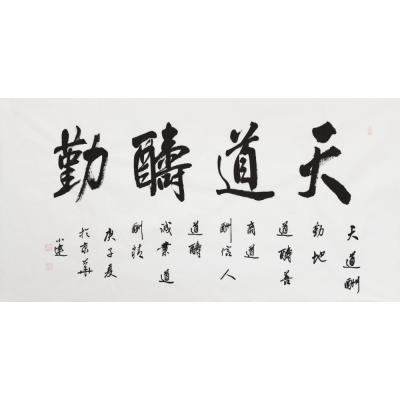 天道醻勤
天道酬
勤地
道醻善
商道
酬信人
道醻
诚業道
酬精
庚子夏
於京華